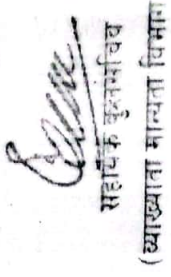 सहाय्यक कुलसचिव
(व्याख्याता मान्यता विभाग